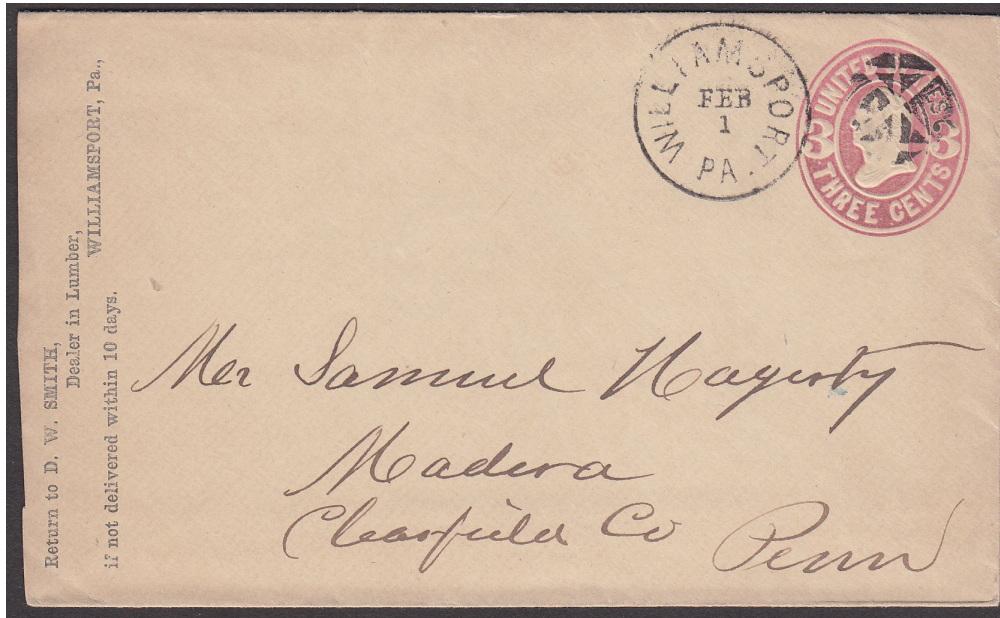 Return to D. W. SMITH,
Dealer in Lumber,
WILLIAMSPORT, Pa.,
if not delivered within 10 days.
WILLIAMSPORT
PA.
FEB
1
UNITED
3 3
THREE CENTS
Mr Samuel Hagerty
Madera
Clearfield Co Penn